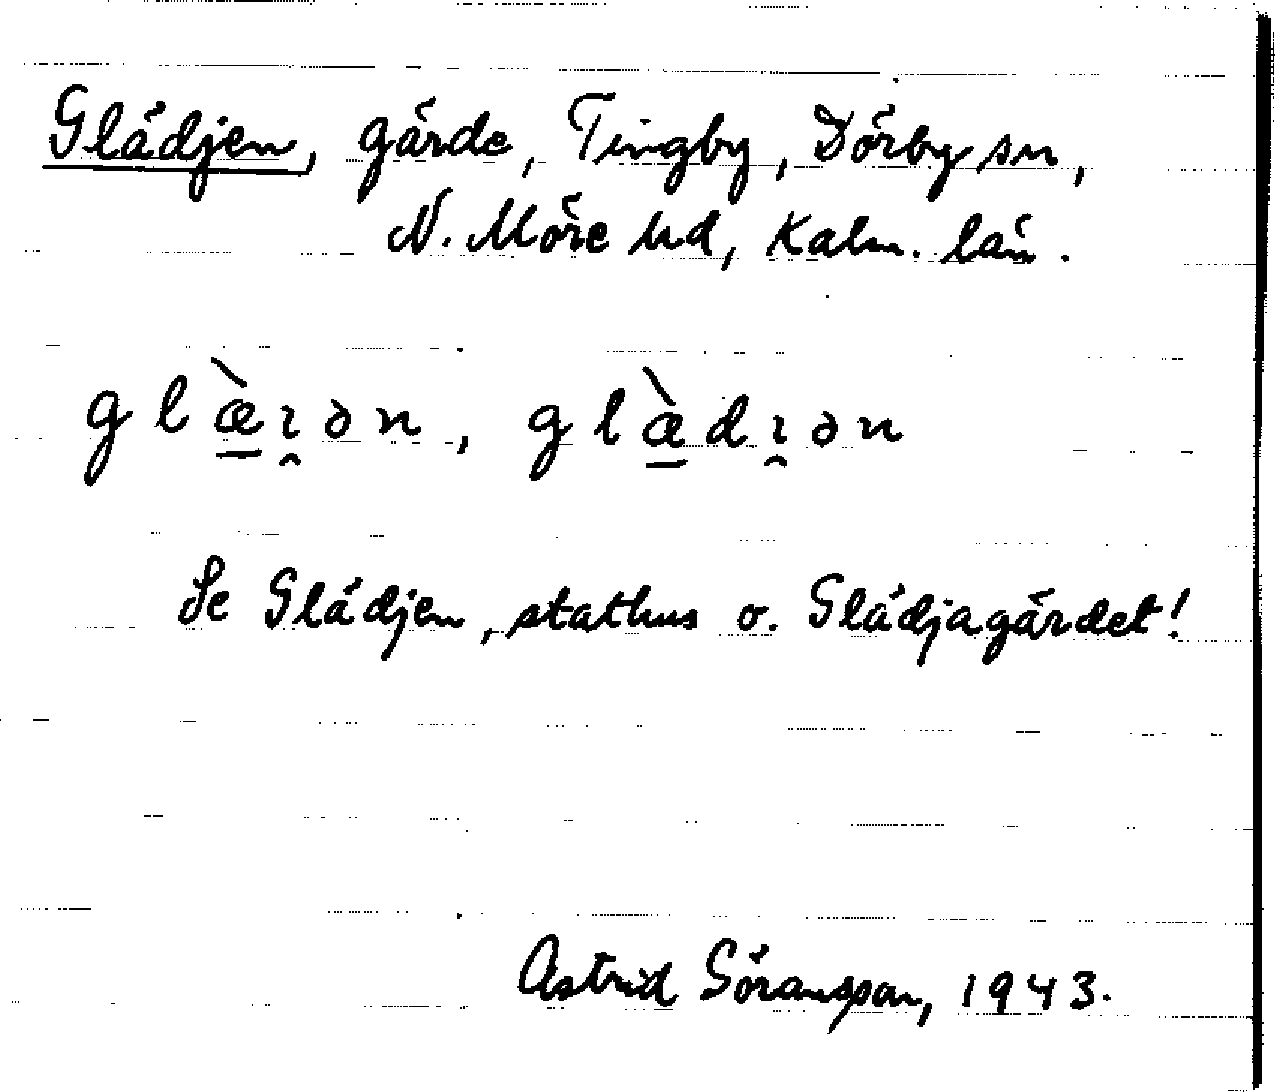 Glädjen, gärde, Tingby, Dörby sn,
N. Möre hd, Kalm. län.
glæ̱̀ı̯ən, glæ̱̀dı̯ən
Se Glädjen, stathus o. Glädjagärdet!
Astrid Göransson, 1943.